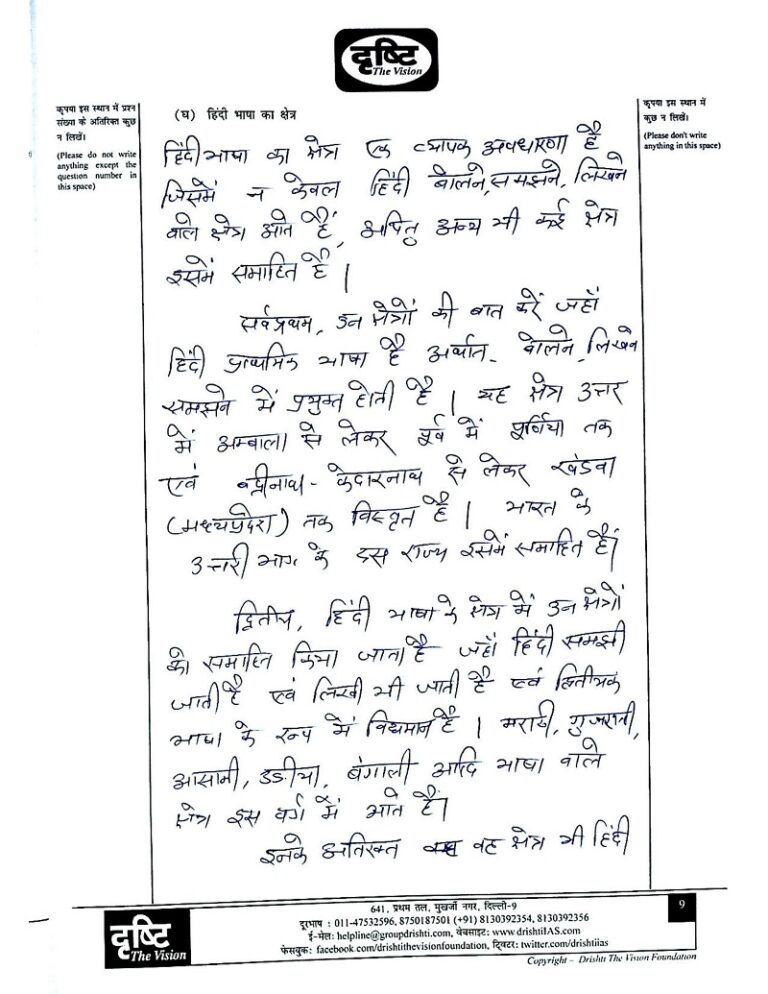 दृष्टि
The Vision
कृपया इस स्थान में प्रश्न
संख्या के अतिरिक्त कुछ
न लिखें।
(Please do not write
anything except the
question number in
this space)
कृपया इस स्थान में
कुछ न लिखें।
(Please don't write
anything in this space)
(घ) हिंदी भाषा का क्षेत्र
हिंदी भाषा का क्षेत्र एक व्यापक अवधारणा है
जिसमें न केवल हिंदी बोलने, समझने, लिखने
वाले क्षेत्र आते हैं, अपितु अन्य भी कई क्षेत्र
इसमें समाहित है।
सर्वप्रथम, उन क्षेत्रों की बात करें जहाँ
हिंदी प्राथमिक भाषा है अर्थात- बोलने, लिखने
समझने में प्रयुक्त होती है। यह क्षेत्र उत्तर
में अम्बाला से लेकर पूर्व में पूर्णिया तक
एवं बद्रीनाथ - केदारनाथ से लेकर खंडवा
(मध्यप्रदेश) तक विस्तृत है। भारत के
उत्तरी भाग के दस राज्य इसमें समाहित हैं।
द्वितीय, हिंदी भाषा के क्षेत्र में उन क्षेत्रों
को समाहित किया जाता है जहाँ हिंदी समझी
जाती है एवं लिखी भी जाती है एवं द्वितीयक
भाषा के रूप में विद्यमान है। मराठी, गुजराती,
आसामी, उड़ीया, बंगाली आदि भाषा वाले
क्षेत्र इस वर्ग में आते हैं।
इनके अतिरक्त वह क्षेत्र भी हिंदी
641, प्रथम तल, मुखर्जी नगर, दिल्ली-9
दूरभाष : 011-47532596, 8750187501 (+91) 8130392354, 8130392356
ई-मेल: helpline@groupdrishti.com, वेबसाइट: www.drishtiIAS.com
फेसबुक: facebook.com/drishtithevisionfoundation, ट्विटर: twitter.com/drishtiias
9
दृष्टि
The Vision
Copyright – Drishti The Vision Foundation